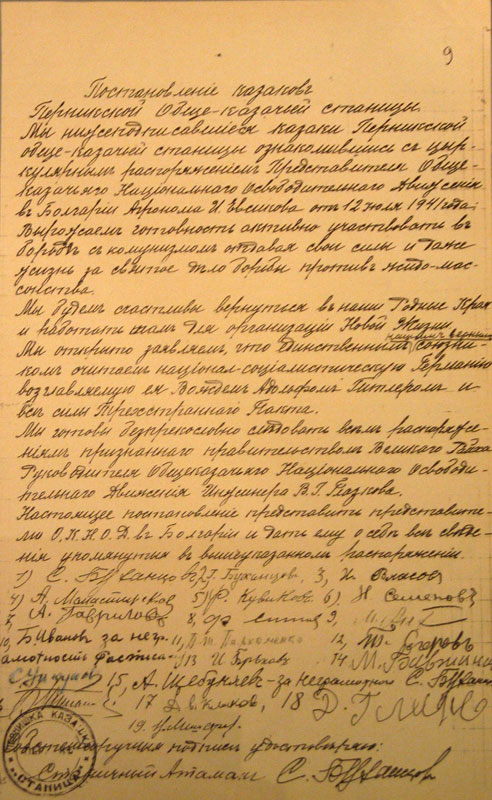 9
Постановленіе казаковъ
Перникской Обще-казачьей станицы.
Мы нижеподписавшіеся казаки Перникской
обще-казачьей станицы ознакомившись съ цыр-
кулярнымъ распоряженіемъ Представителя Обще-
казачьяго Національнаго Освободительнаго Движенія
въ Болгаріи Агронома И. Евсикова отъ 12 іюля 1941 года:
Выражаемъ готовность активно участвовать въ
борьбѣ съ комунизмомъ отдавая свои силы и даже
жизнь за святое дѣло борьбы противъ жидо-мас-
сонства.
Мы будемъ счастливы вернуться въ наши Родные Края
и работать тамъ для организаціи Новой Жизни.
Мы открыто заявляемъ, что единственнымъ союзни-
комъ считаемъ націонал-соціалистическую Германію
возглавляемую ея Вождемъ Адольфомъ Гитлеромъ и
всѣ силы Трехстраннаго Пакта.
Мы готовы безпрекословно слѣдовать всѣмъ распоряже-
ніямъ признаннаго правительствомъ Великаго Райха
Руководителя Общеказачьяго Національнаго Освободи-
тельнаго Движенія Инженера В. Г. Глазкова.
Настоящее постановленіе представить представите-
лю О.К.Н.О.Д. въ Болгаріи и дать ему о себѣ всѣ свѣде-
нія упомянутыя въ вышеуказанномъ распоряженіи.
1) С. Буханцовъ, 2) Г. Буханцовъ, 3, И. Власов
4) А. 5) Ф. Кувиковъ 6) Н Семеновъ
А. Гавриловъ 8, 9,
10, Б Ивановъ за негр- 11, Пахоменко 12,
амотность фасписа- 13 И 14 М.
15, А. за неграмотного С. Бухан
17 18 Д.
19.
подпись удостоверяю:
Станичный Атаманъ С. Буханцов
КАЗАЦК
СТАНИЦА